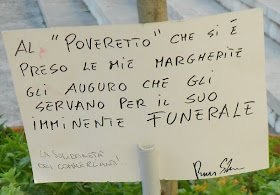 AL "POVERETTO" CHE SI È
PRESO LE MIE MARGHERITE
GLI AUGURO CHE GLI
SERVANO PER IL SUO
IMMINENTE FUNERALE
LA SOLIDARIETÀ
DEI COMMERCIANTI!